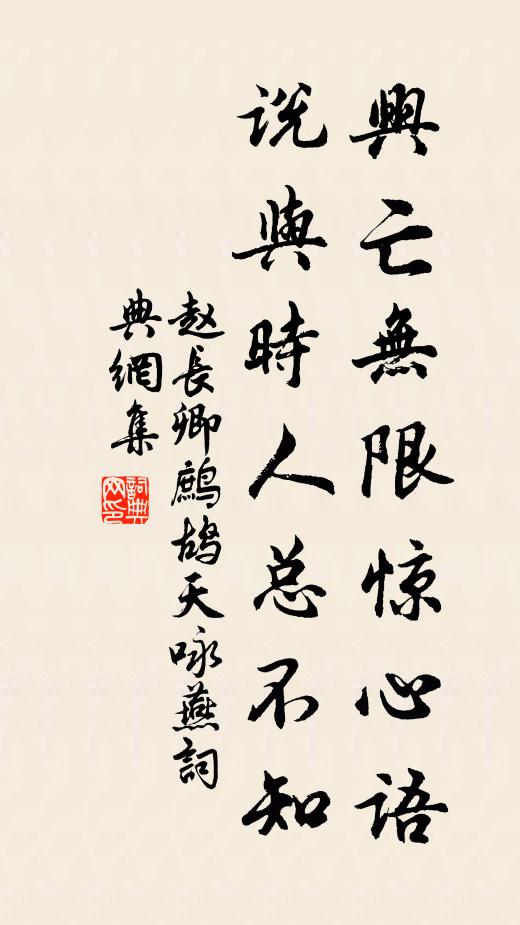 興亡無限惊心語
説與時人总不知
赵長卿鷓鴣天咏燕詞
典網集
詞典网印